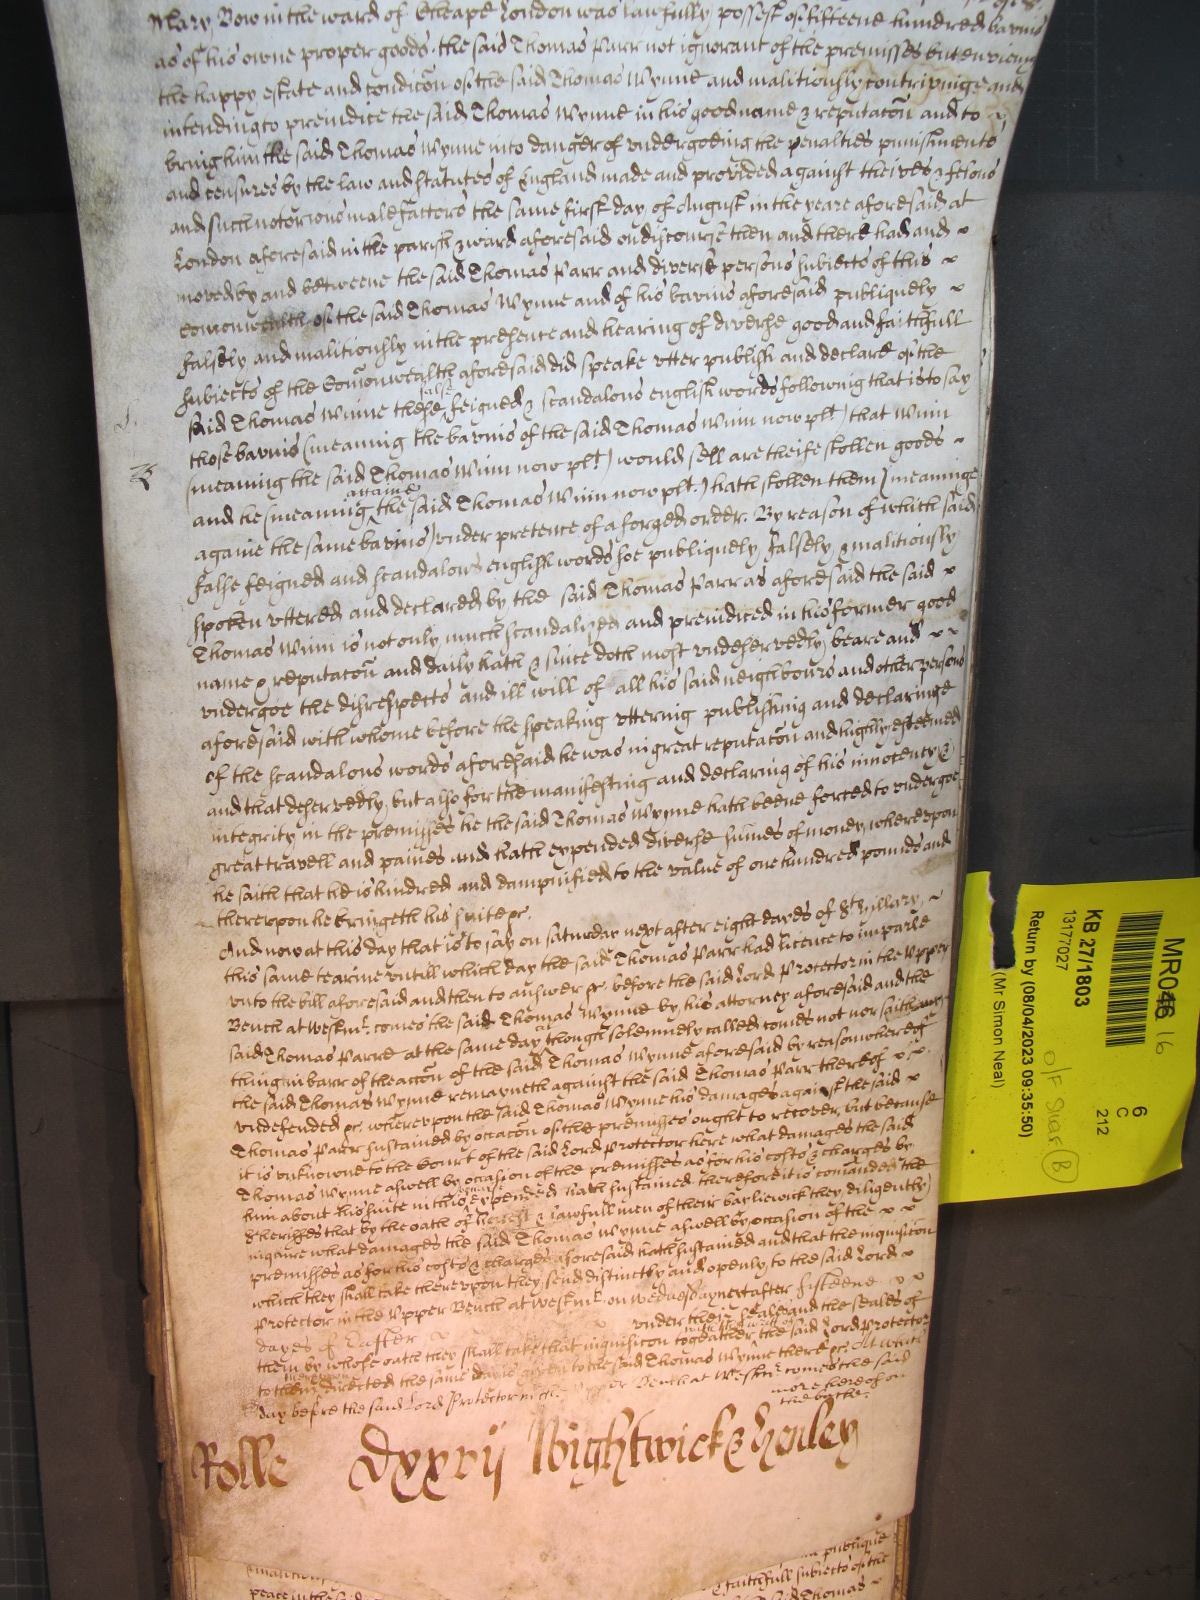 Mary Bow in the ward of Cheape London was lawfully possest of fifteene hundred bavins
as of his owne proper goods. the said Thomas Parr not ignorant of the premisses but envieing
the happy estate and condicōn of the said Thomas Wynne and malitiously contriveinge and
intending to preiudice the said Thomas Wynne in his good name & reputacōn and to
bring him the said Thomas Wynne into danger of undergoeing the penalties punishments
and censures by the law and statutes of England made and provided against theives & felons
and such notorious malefactors the same first day of August in the yeare aforesaid at
London aforesaid in the parish & ward aforesaid on discourse then and there had and
moved by and betweene the said Thomas Parr and diverse persons subiects of this
comonwealth of the said Thomas Wynne and of his bavins aforesaid publiquely
falsely and malitiously in the presence and hearing of diverse good and faithfull
subiects of the Comonwealth aforesaid did speake utter publish and declare of the
said Thomas Winne these false feigned & scandalous english words following that is to say
those bavins (meaning the bavins of the said Thomas Winn now plt) that Winn
(meaning the said Thomas Winn now plt) would sell are theife stollen goods
and he (meaning againe the said Thomas Winn now plt.) hath stollen them (meaninge
againe the same bavins) under pretence of a forged order. By reason of which said
false feigned and scandalous english words soe publiquely falsely & malitiously
spoken uttered and declared by the said Thomas Parr as aforesaid the said
Thomas Winn is not only much scandalized and preiudiced in his former good
name & reputacōn and daily hath & since doth most undeservedly beare and
undergoe the disrespects and ill will of all his said neighbours and other persons
aforesaid with whome before the speaking uttering publishing and declaringe
of the scandalous words aforesaid he was in great reputacōn and highly esteemed
and that deservedly, but also for the manifesting and declaring of his innocency &
integrity in the premisses he the said Thomas Wynne hath beene forced to undergoe
great travell and paines and hath expended diverse sumes of money, whereupon
he saith that he is hindred and dampnified to the value of one hundred pounds and
thereupon he bringeth his suite &c.
And now at this day that is to say on saturday next after eight dayes of St Hillary,
this same tearme untill which day the said Thomas Parr had licence to imparle
unto the bill aforesaid and then to answer &c. before the said Lord Protector in the Upper
Bench at Westmr. comes the said Thomas Wynne by his attorney aforesaid and the
said Thomas Parre at the same day although solemnely called comes not nor saith any
thing in barr of the accōn of the said Thomas Wynne aforesaid by reason whereof
the said Thomas Wynne remayneth against the said Thomas Parr thereof
undefended &c. whereupon the said Thomas Wynne his damages against the said
Thomas Parr sustained by occacōn of the premisses ought to recover, but because
it is unknowne to the Court of the said Lord Protector here what damages the said
Thomas Wynne aswell by occasion of the premisses as for his costs & charges by
him about his suite in this behalfe expended hath sustained. therefore it is comanded the
Sheriffes that by the oath of honest & lawfull men of their bayliewick they diligently
inquire what damages the said Thomas Wynne aswell by occasion of the
premisses as for his costs & charges aforesaid hath sustained and that the inquisicōn
which they shall take thereupon they send distinctly and openly to the said Lord
Protector in the Upper Bench at Westmr. on Wednesday next after fifteene
dayes of Easter under their seales and the seales of
them by whose oath they shall take that inquisicōn togeather with the writt of the said Lord Protector
to them thereupon directed the same day is given to the said Thomas Wynne there &c. At which
day before the said Lord Protector in the Upper Bench at Westmr. comes the said
more hereof on
the backe.
Rolle Dxxvij Wightwick & Henley
publique
& faithfull subiects of the
peace in the said Thomas
MR046 16
KB 27/1803
13177027
Return by (08/04/2023 09:35:50)
(Mr Simon Neal)
6
C
212
O/F Shar B